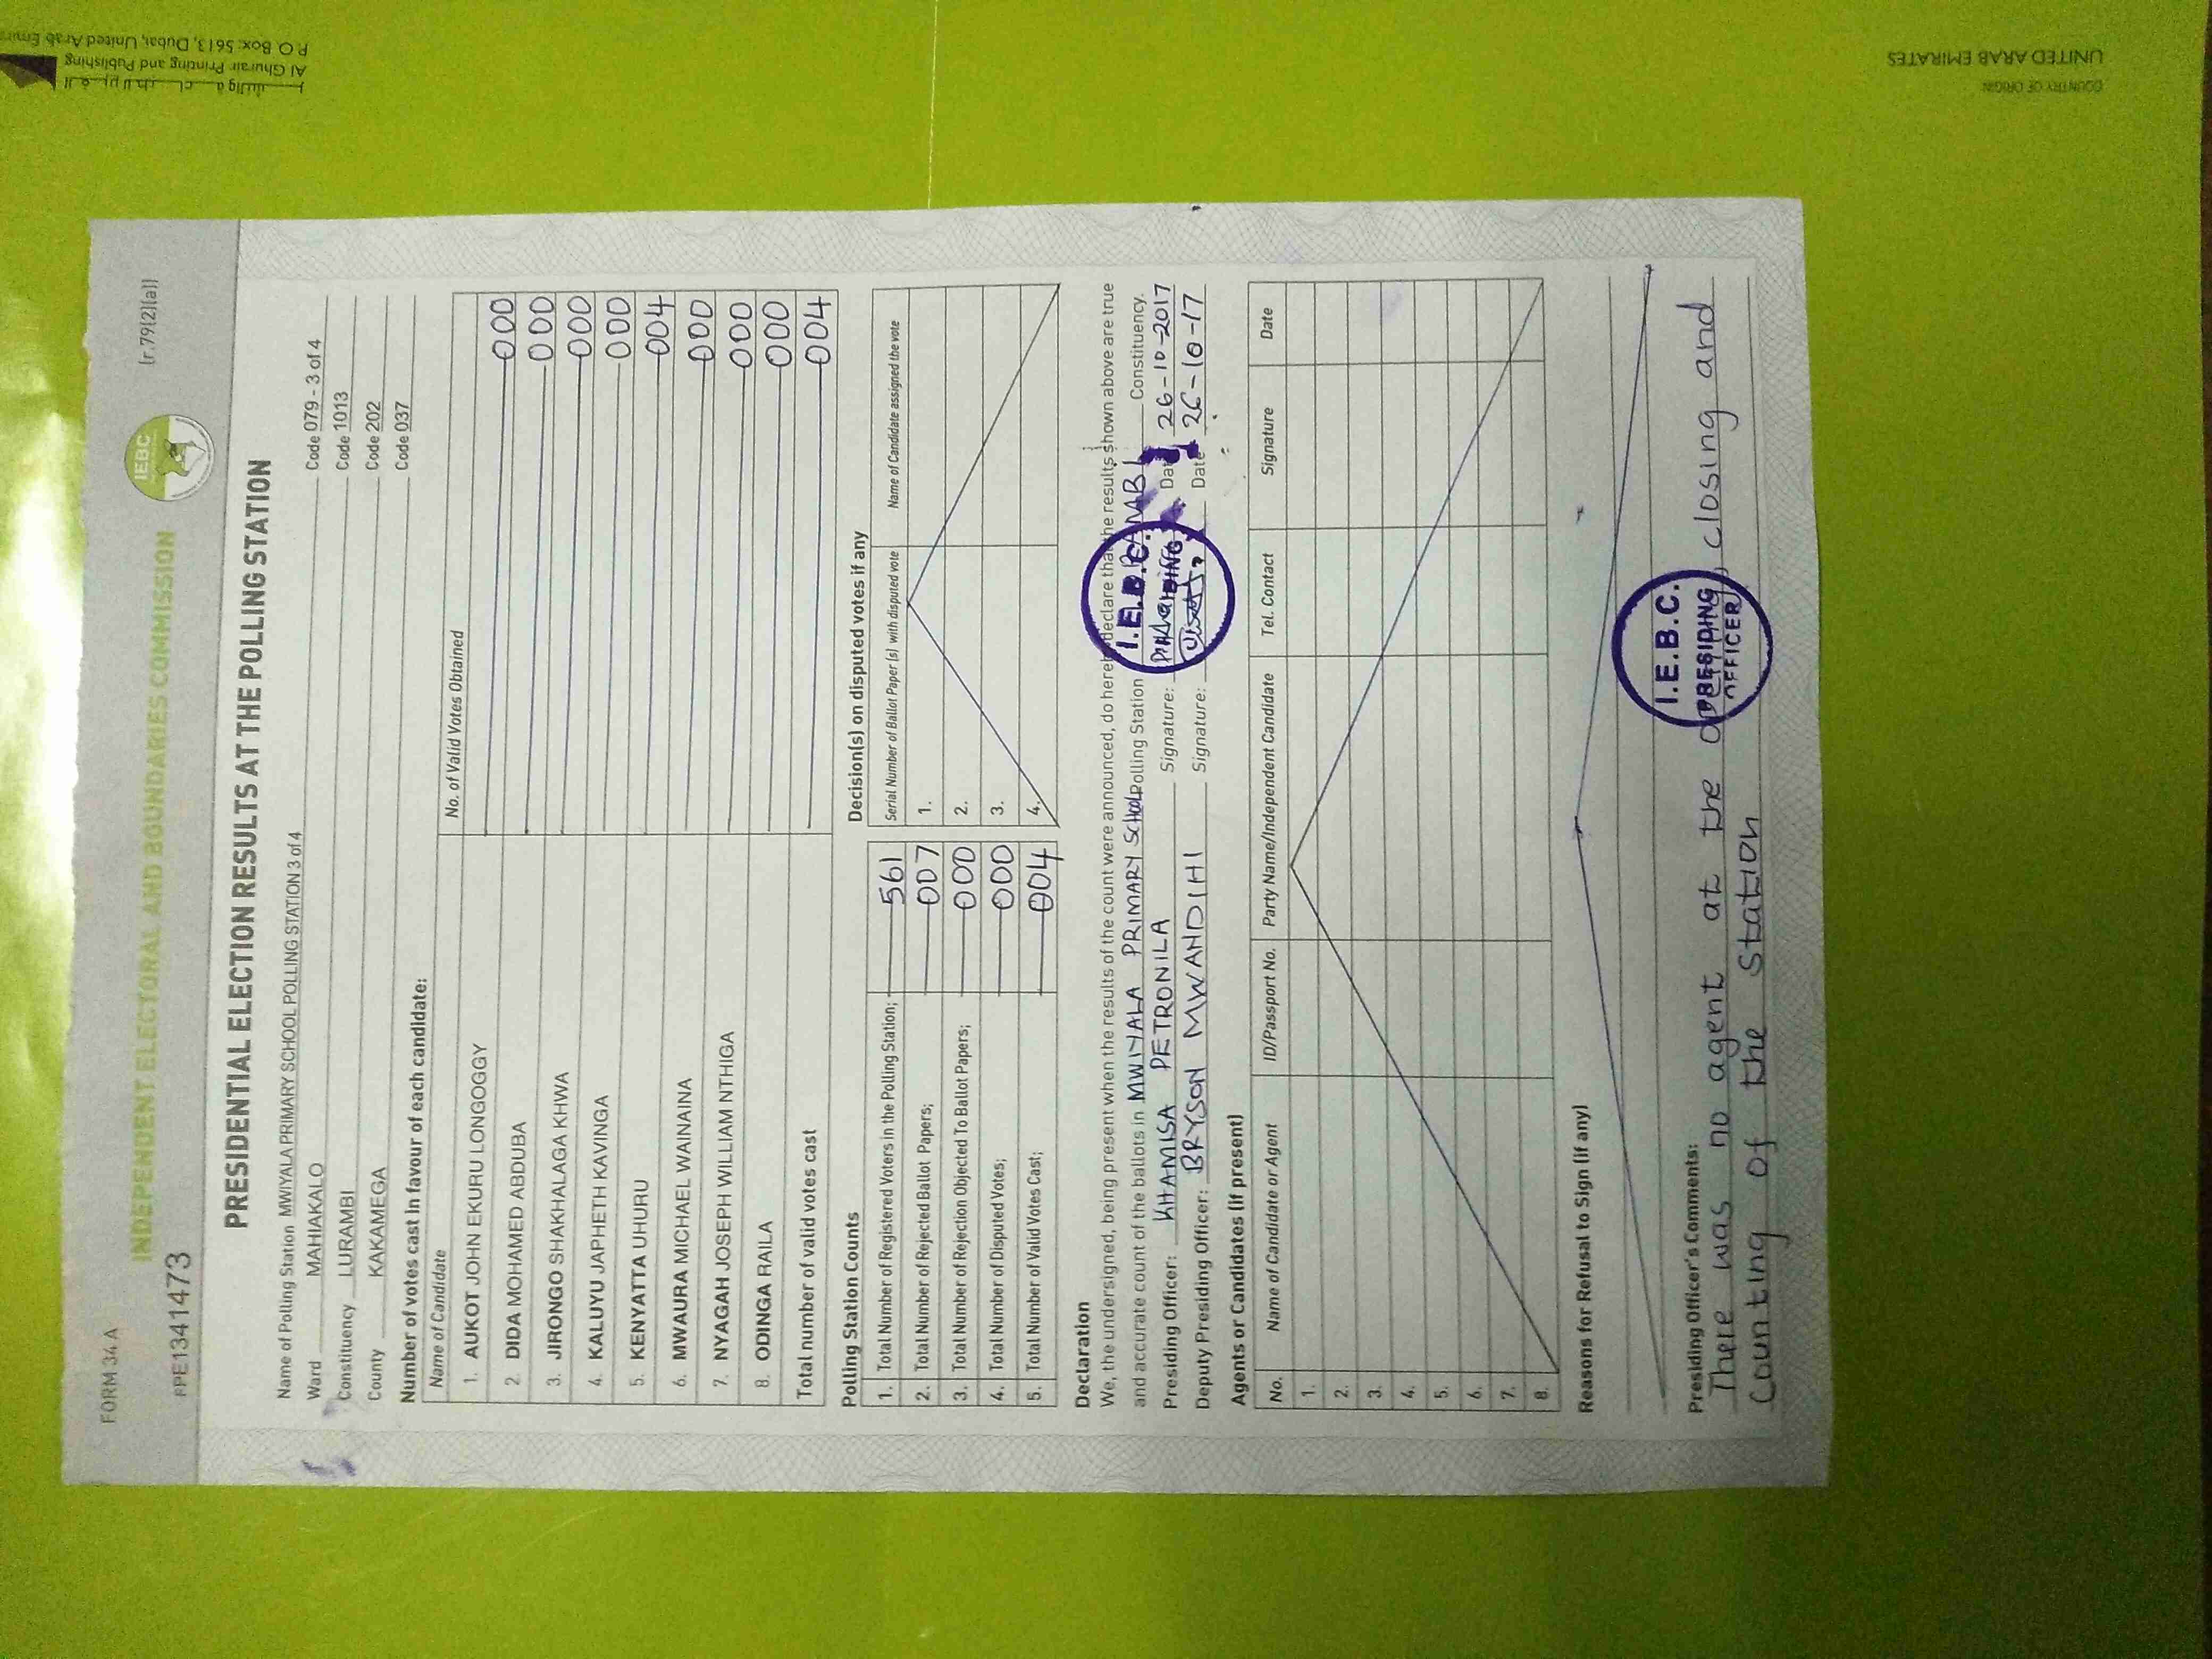 FORM 34A
INDEPENDENT ELECTORAL AND BOUNDARIES COMMISSION
IEBC
(r.79(2)(a))
PPE1341473
PRESIDENTIAL ELECTION RESULTS AT THE POLLING STATION
Name of Polling Station MWIYALA PRIMARY SCHOOL POLLING STATION 3 of 4 Code 079 - 3 of 4
Ward MAHIAKALO Code 1013
Constituency LURAMBI Code 202
County KAKAMEGA Code 037
Number of votes cast in favour of each candidate:
Name of Candidate No. of Valid Votes Obtained
1. AUKOT JOHN EKURU LONGOGGY 000
2. DIDA MOHAMED ABDUBA 000
3. JIRONGO SHAKHALAGA KHWA 000
4. KALUYU JAPHETH KAVINGA 000
5. KENYATTA UHURU 004
6. MWAURA MICHAEL WAINAINA 000
7. NYAGAH JOSEPH WILLIAM NTHIGA 000
8. ODINGA RAILA 000
Total number of valid votes cast 004
Polling Station Counts
1. Total Number of Registered Voters in the Polling Station; 561
2. Total Number of Rejected Ballot Papers; 007
3. Total Number of Rejection Objected To Ballot Papers; 000
4. Total Number of Disputed Votes; 000
5. Total Number of Valid Votes Cast; 004
Decision(s) on disputed votes if any
Serial Number of Ballot Paper (s) with disputed vote Name of Candidate assigned the vote
1.
2.
3.
4.
Declaration
We, the undersigned, being present when the results of the count were announced, do hereby declare that the results shown above are true
and accurate count of the ballots in MWIYALA PRIMARY SCHOOL Polling Station LURAMBI Constituency.
Presiding Officer: KHAMISA PETRONILA Signature: Date 26-10-2017
Deputy Presiding Officer: BRYSON MWANDIHI Signature: Date 26-10-17
I.E.B.C.
PRESIDING
Agents or Candidates (if present)
No. Name of Candidate or Agent ID/Passport No. Party Name/Independent Candidate Tel. Contact Signature Date
1.
2.
3.
4.
5.
6.
7.
8.
Reasons for Refusal to Sign (if any)
Presiding Officer's Comments:
There was no agent at the opening, closing and
Counting of the Station
I.E.B.C.
PRESIDING
OFFICER
Al Ghurair Printing and Publishing
P O Box: 5613, Dubai, United Arab Emira
COUNTRY OF ORIGIN
UNITED ARAB EMIRATES